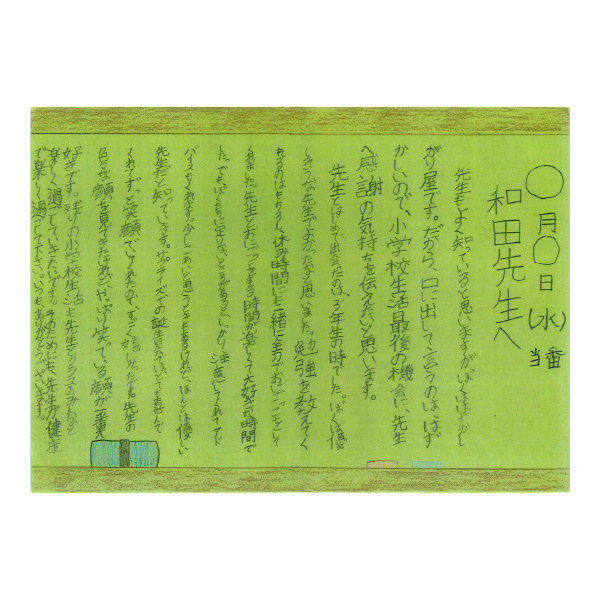 〇月〇日(水)
当番
和田先生へ
先生もよく知っていると思いますが、ぼくははずかし
がり屋です。だから、口に出して言うのは、はず
かしいので、小学校生活最後の機会に、先生
へ感謝の気持ちを伝えたいと思います。
先生とはじめて出会ったのは、3年生の時でした。ぼくは優
しそうな先生でよかったなと思いました。勉強を教えてく
れるのはもちろん、休み時間にも一緒に全力でおにごっこをして
くれました。先生とおにごっこをする時間が楽しくて大好きな時間で
した。でも、ぼくたちに足りないところがあるとしっかり注意してくれてアド
バイスもくれます。少しこわいと思うときもあるけれど、ほんとは優しい
先生だと知っています。サプライズの誕生日
くれてずっと笑顔でいてくれたので、すごく
色々な顔を見てきたけれど、やっぱり笑っている顔が一番
好きです。残りの小学校生活も先生とクラスのみんなと
楽しく過ごしていきたいです。そのためにも、先生が健康
で楽しく過ごして下さい。いつもありがとうございます。